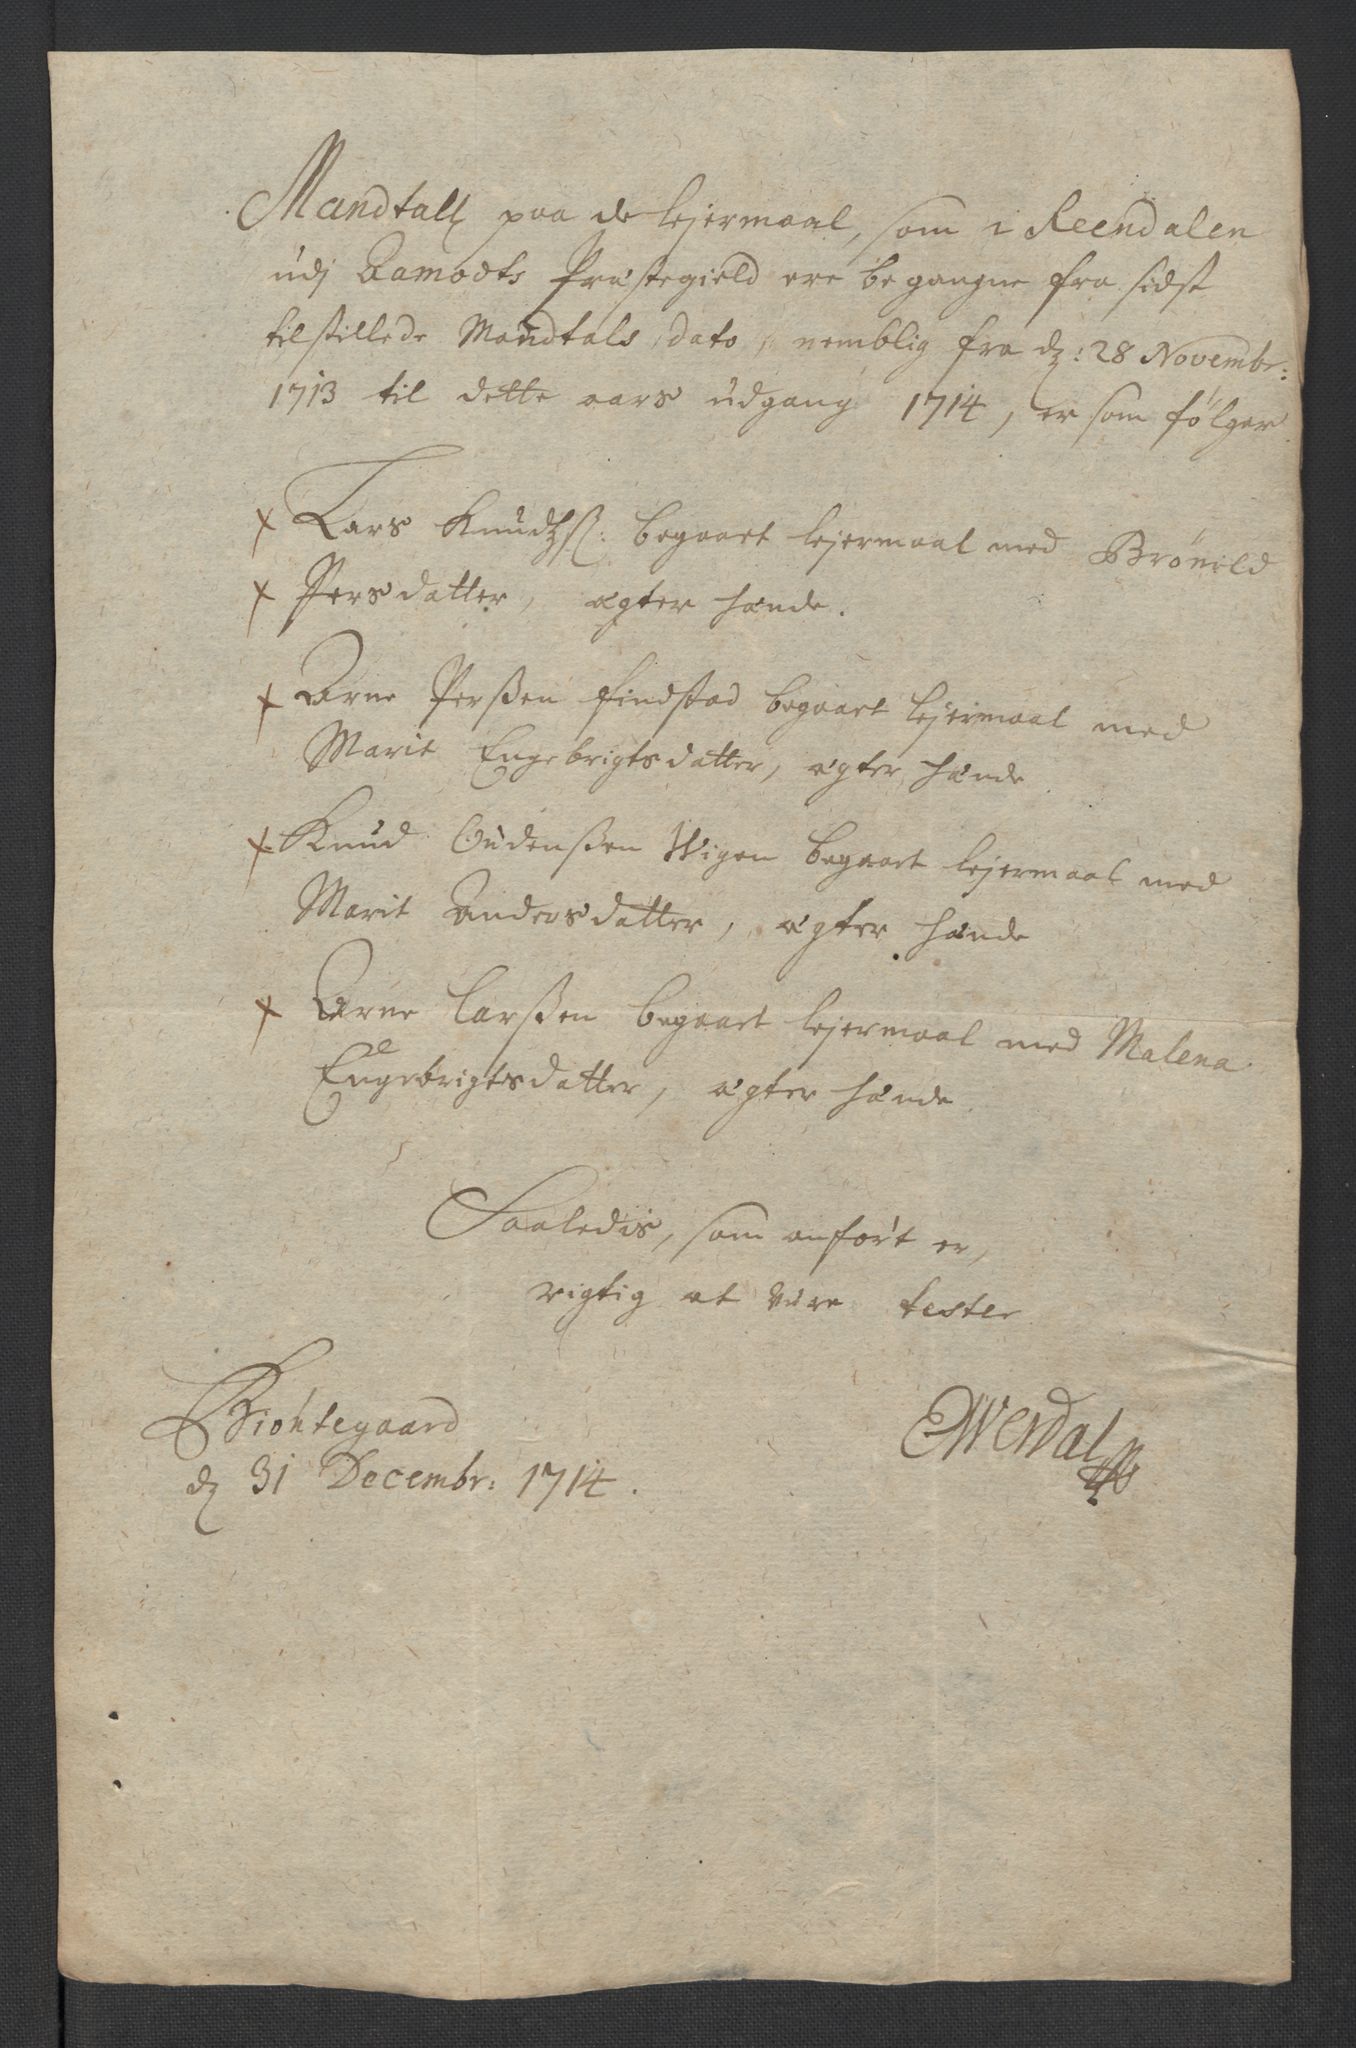 Mandtall paa de lejermaal, som i Reendalen
udj Aamodts Præstegield ere begangne fra sidst
tilstillede Mandtals dato, nemblig fra dz: 28 Novembr:
1713 til dette aars udgang 1714, er som følger
Lars Knudtzß: begaaet lejermaal med Brönild
Persdatter, ægter hænde.
Arne Perßen Findstad begaaet lejermaal med
Marit Engebrigtsdatter, ægter hænde
Knud Oudenßen Wigen begaaet lejermaal med
Marit Andersdatter, ægter hænde
Arne Larßen begaaet lejermaal med Malena
Engebrigtsdatter, ægter hænde
Saaledis, som anført er,
rigtig at være tester
dz 31 Decembr: 1714.
EWerdal